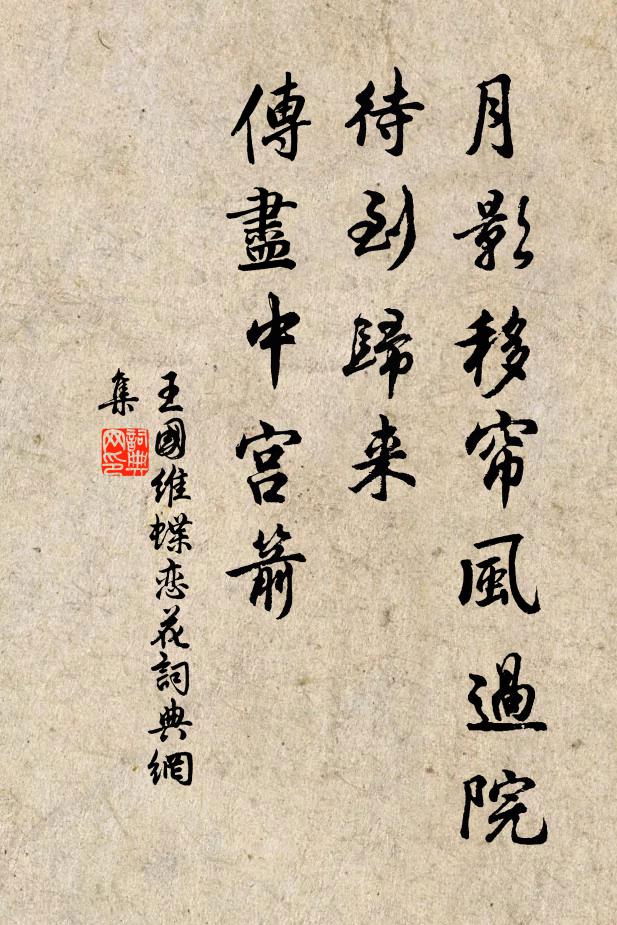 月影移帘風過院
待到歸来
傳盡中宮箭
王國維蝶恋花詞典網
集
詞典
网印